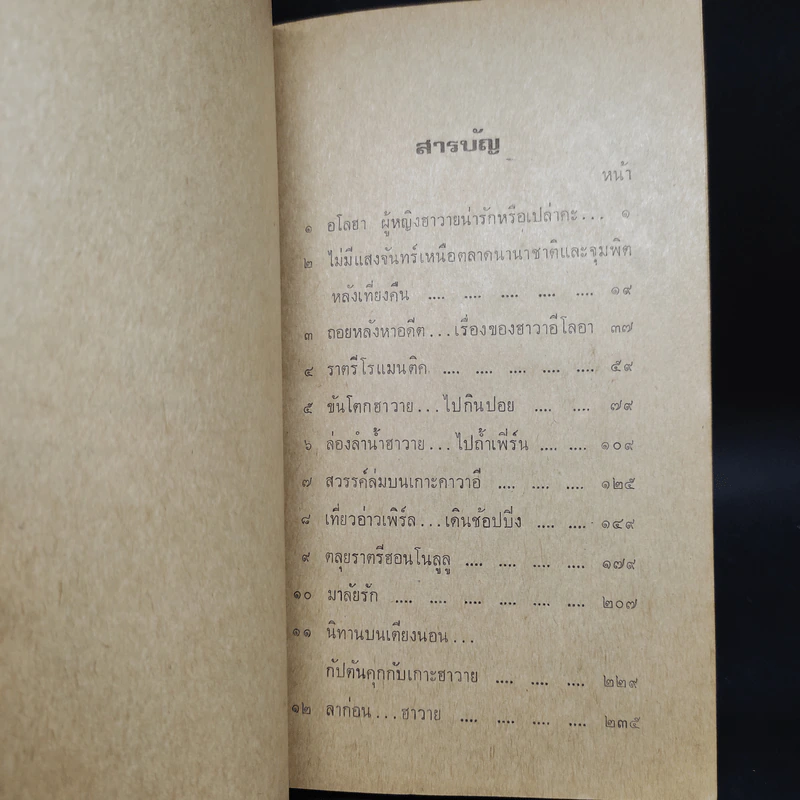 สารบัญ
หน้า
๑ อโลฮา ผู้หญิงฮาวายน่ารักหรือเปล่าคะ... ๑
๒ ไม่มีแสงจันทร์เหนือตลาดนานาชาติและจุมพิต
หลังเที่ยงคืน .... .... .... .... .... ๑๙
๓ ถอยหลังหาอดีต...เรื่องของฮาวาอีโลอา ๓๗
๔ ราตรีโรแมนติค .... .... .... .... .... ๕๙
๕ ขันโตกฮาวาย...ไปกินปอย .... .... ๗๙
๖ ล่องลำน้ำฮาวาย...ไปถ้ำเฟิร์น .... .... ๑๐๙
๗ สวรรค์ล่มบนเกาะคาวาอี .... .... .... ๑๒๕
๘ เที่ยวอ่าวเพิร์ล...เดินช้อปปิ้ง .... .... ๑๔๙
๙ ตลุยราตรีฮอนโนลูลู .... .... .... .... ๑๗๙
๑๐ มาลัยรัก .... .... .... .... .... .... ๒๐๗
๑๑ นิทานบนเตียงนอน...
กัปตันคุกกับเกาะฮาวาย .... .... .... ๒๒๙
๑๒ ลาก่อน...ฮาวาย .... .... .... .... ๒๓๕